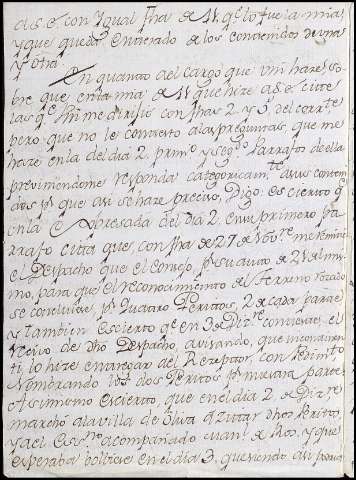 a S. S. con Ygual fha de 11. q.e lo fue la mia,
y que quedò enterado de los contenidos de una
y otra.
En quanto al cargo que Vm haze sobre
que en la mia de 11 que hize a S. S. cite
las q.e Vm me dirijio con fhas 2 y 3 del corr.te
pero que no le contexto a las preguntas, que me
haze en la del dia 2. prim.o y seg.do Parrafos de ella
previniendome responda categoricam.te a sus conteni
dos p.r que asi se haze preciso, Digo: es cierto q.e
en la expresada del dia 2. en su primero Pa
rrafo cita que, con fha de 27 de Nov.re me remitio
el Despacho que el Consejo, p.r su auto de 21 del mis
mo, para que el reconocimiento del Termino rozado
se concluiese, p.r quatro Peritos, 2 de cada parte
y tambien es cierto q.e en 3 de Diz.re contexte, el
recivo de dho Despacho, avisando, que incontinen
ti, lo hize entregar del Rezeptor, con Pedim.to
Nombrando los dos Peritos p.r nuestra parte
Asimismo es cierto, que en el dia 2 de Diz.re
marchó a la villa de Oliva a zitar dhos Peritos,
y a el Ess.no acompañado de Ros, y que
esperaba bolviese en el dia 3. queriendo asi